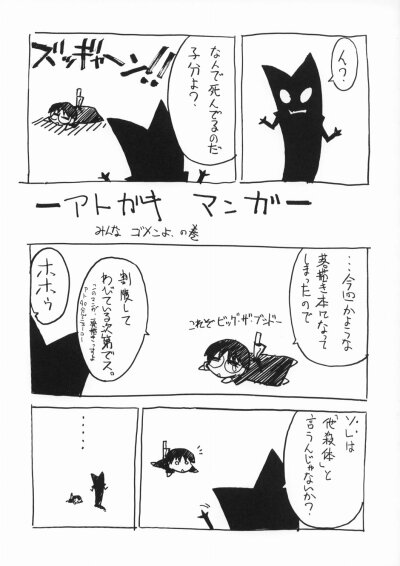 ん?
なんで死んでるのだ
子分よ?
ズッギャーン!!
ーアトガキ マンガー
みんな ゴメンよ、の巻
・・・今回かような
落描き本になって
しまったので
これぞビッグ・ザ・ブンドー
割腹して
わびている次第でス。
ホホゥ
ソレは
「他殺体」と
言うんじゃないか?
・・・・・